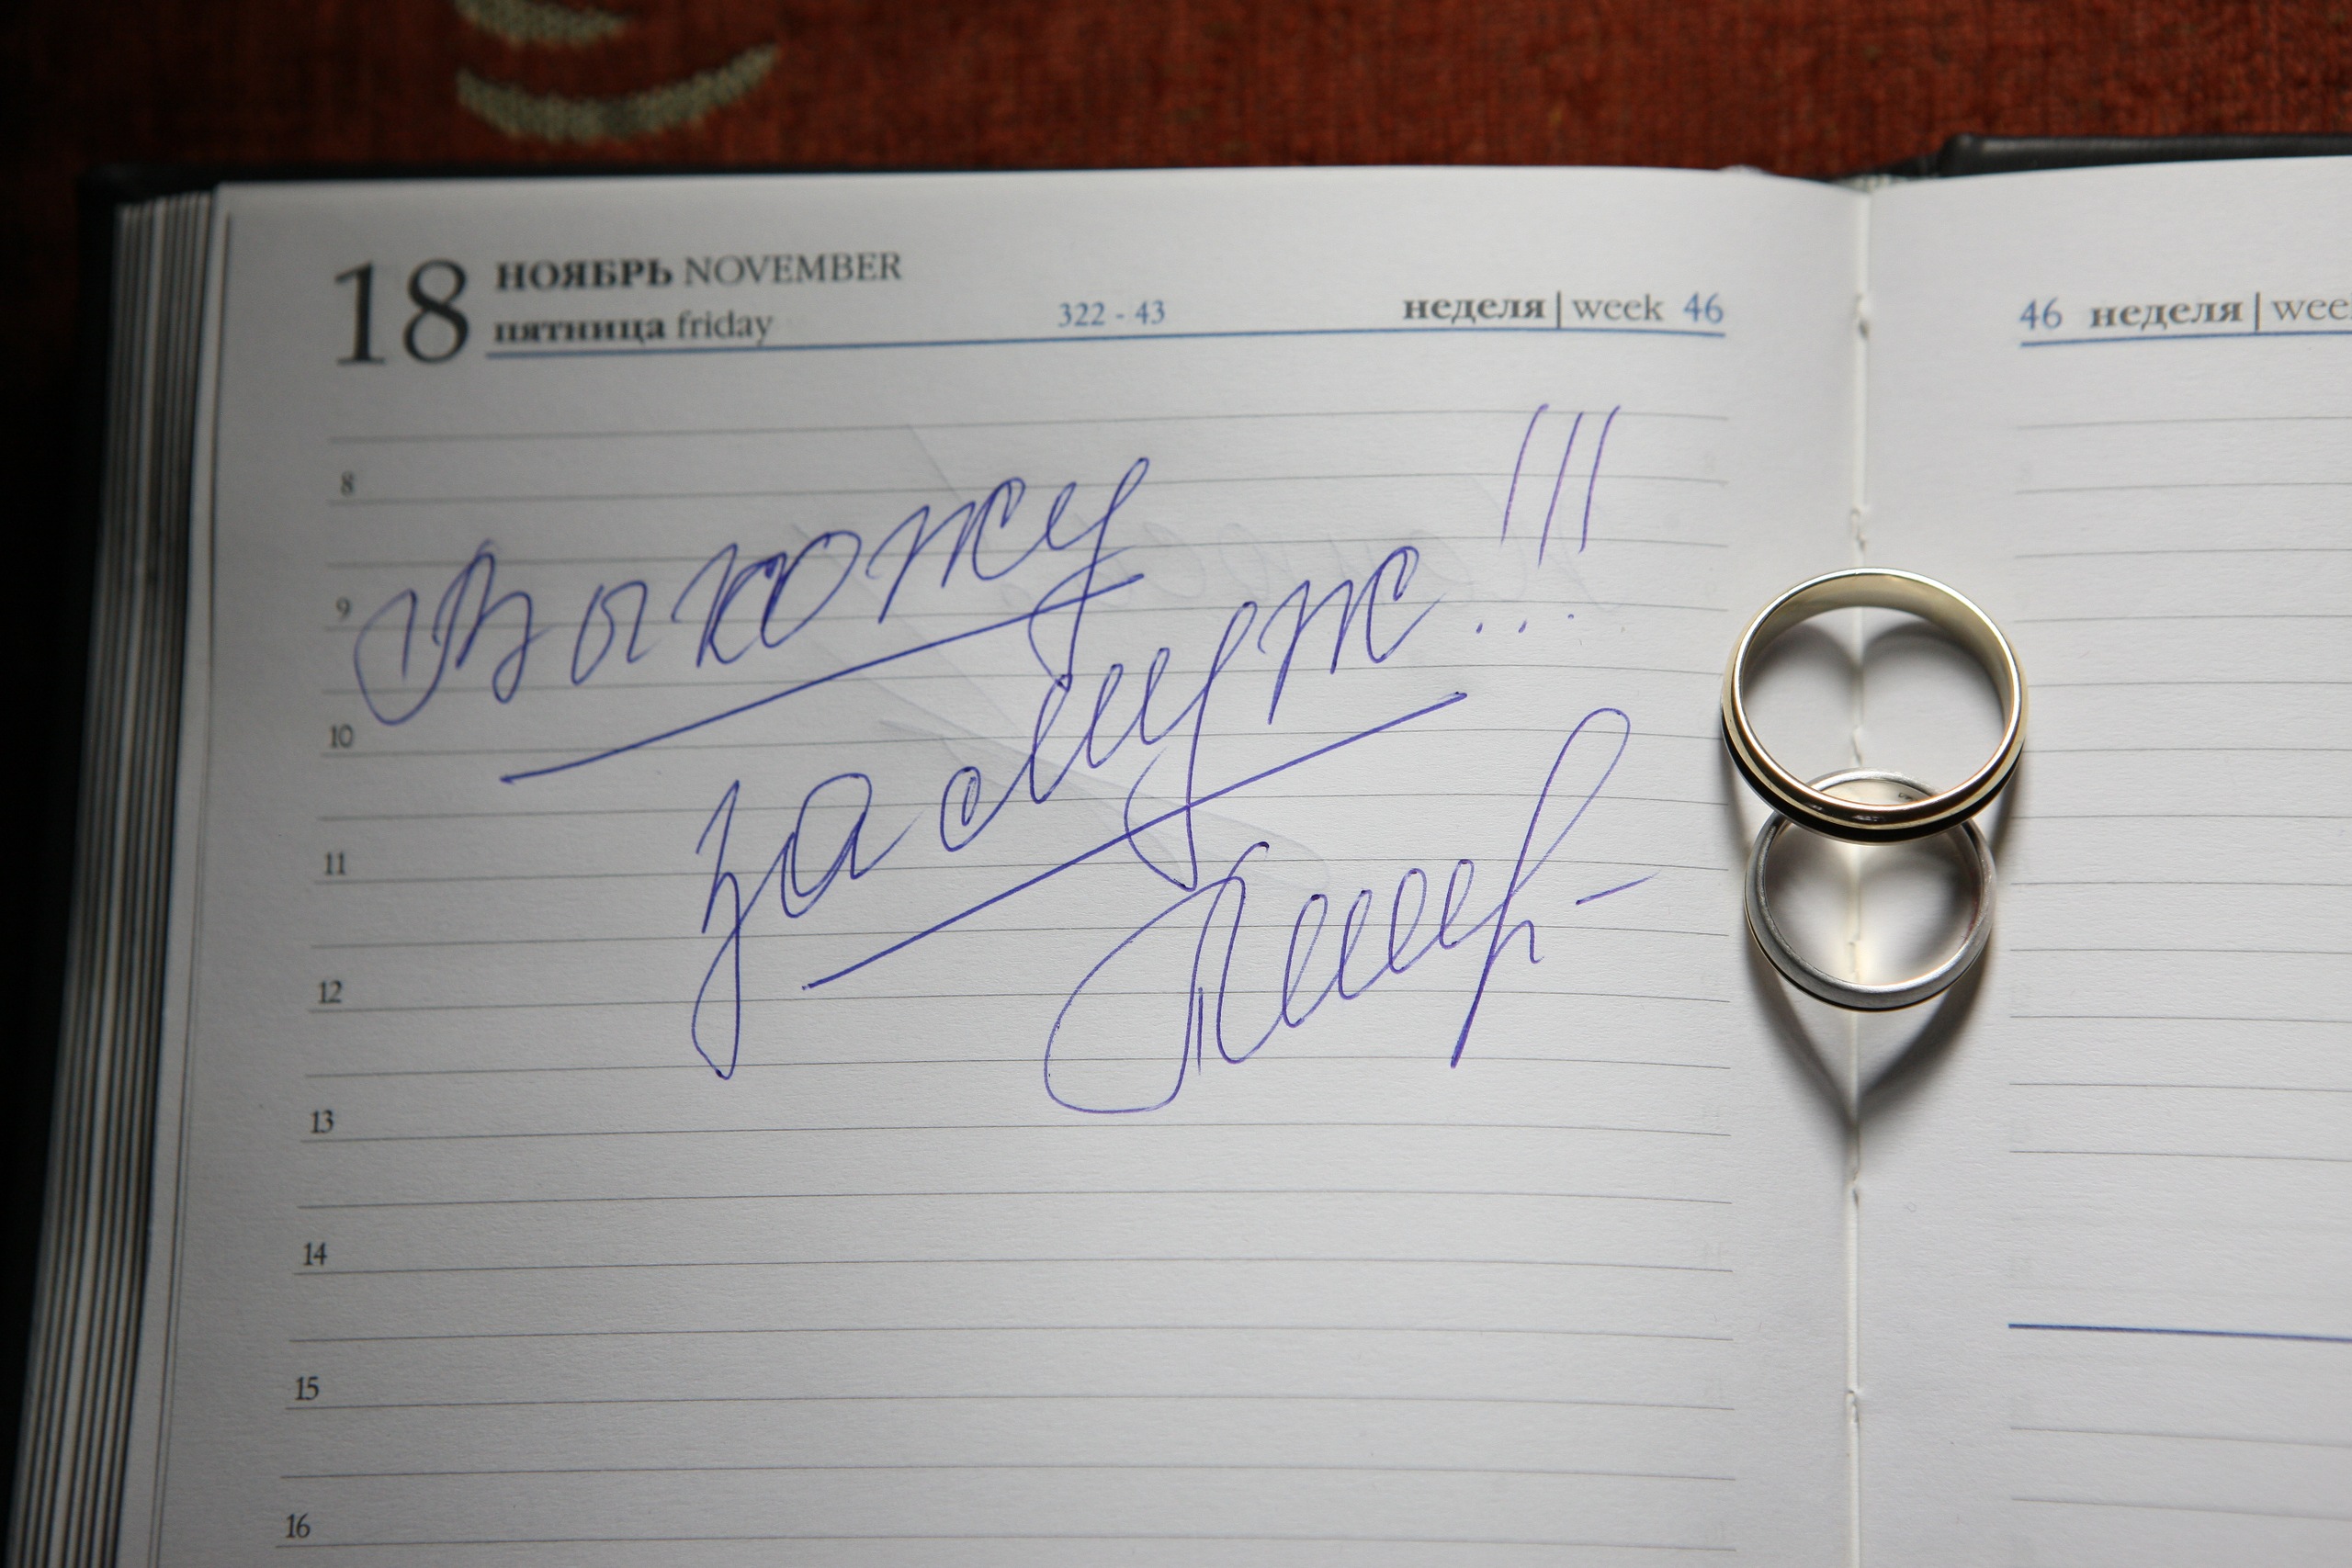 18 НОЯБРЬ NOVEMBER
пятница friday 322 - 43 неделя | week 46
46 неделя |
8
Выхожу
замуж!!!
9
10
11
12
13
14
15
16